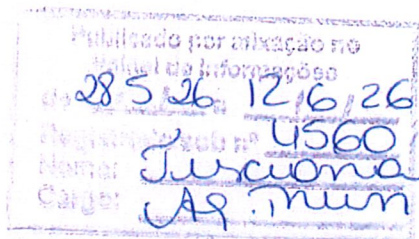 Publicado por afixação no
Painel de Informações
de 28 5 26 a 12/6/26
Registrado sob nº 4560
Nome: Jusciana
Cargo: Ag. Mun